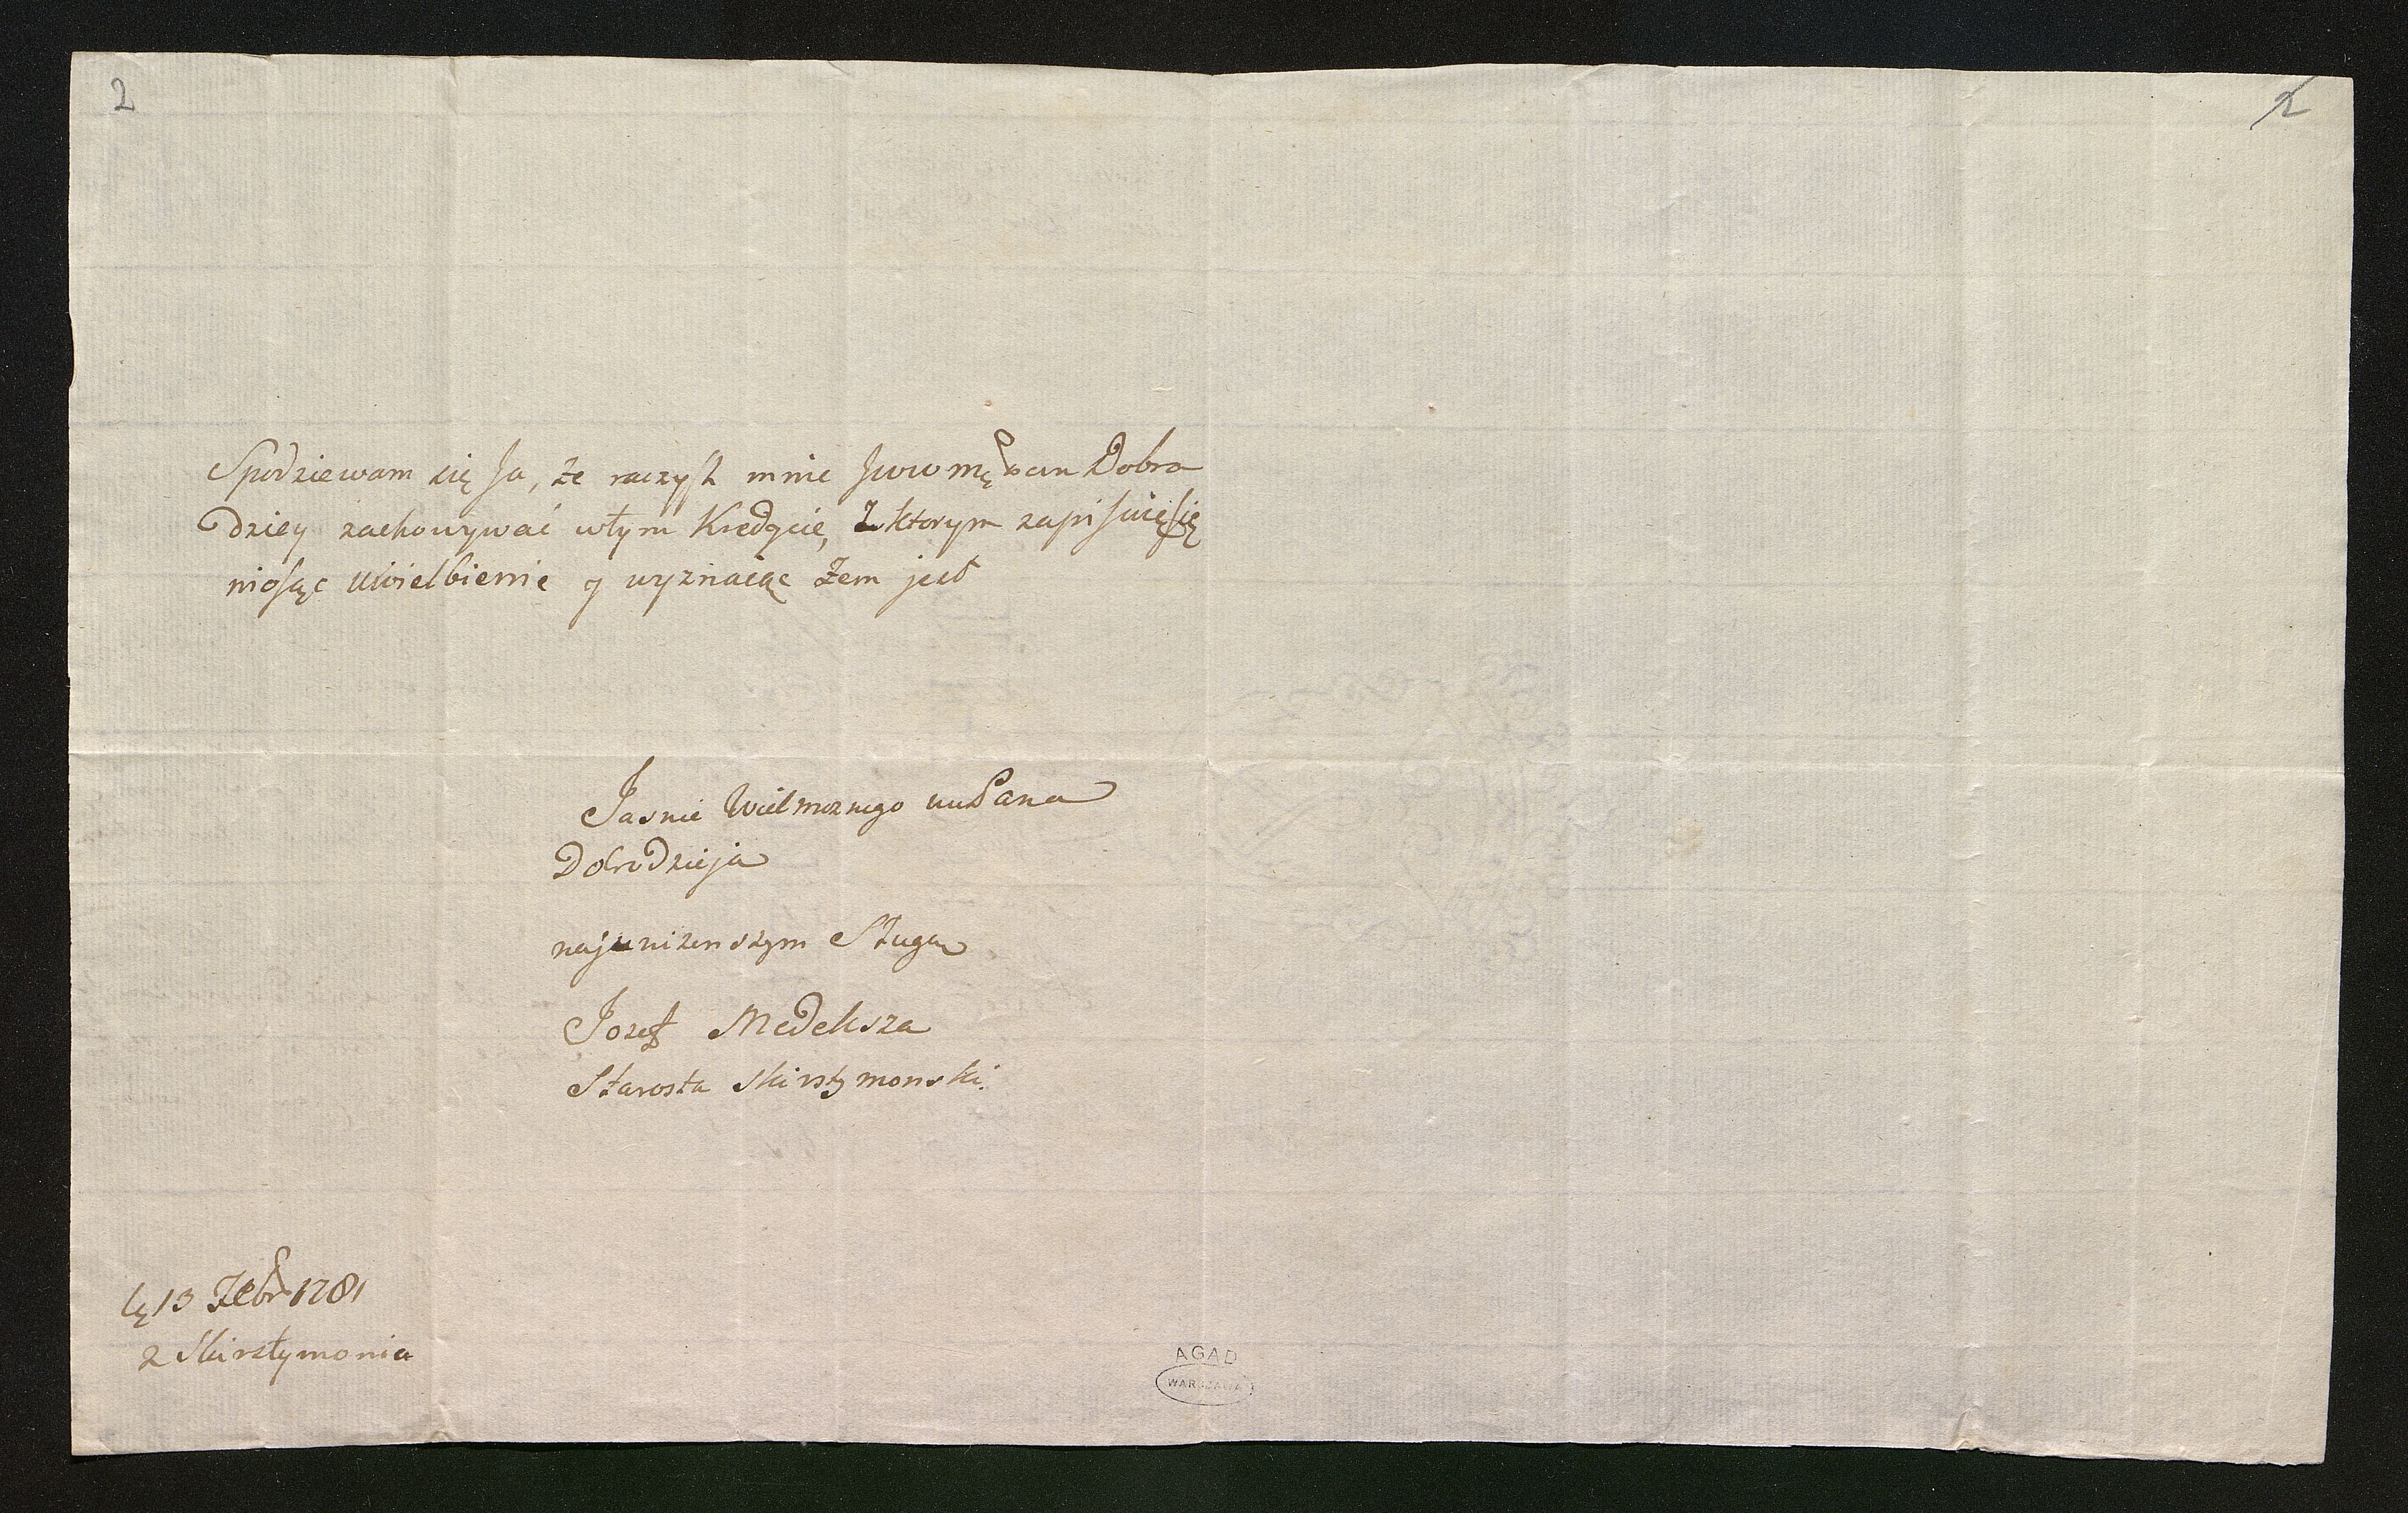 2
2
Spodziewam się ja, że raczysz mnie JWW mę Pan Dobro
dziey zachowywać wtym Kredycie, z ktorym zapisuię się
niosąc uwielbienie y wyznaiąc żem jest
Jasnie Wielmoznego Pana
Dobrodzieja
najunizenszym Sługą
Jozef Medeksza
Starosta Skirstymonski.
13 Febr 1781
z Skirstymonia
AGAD
WARSZAWA